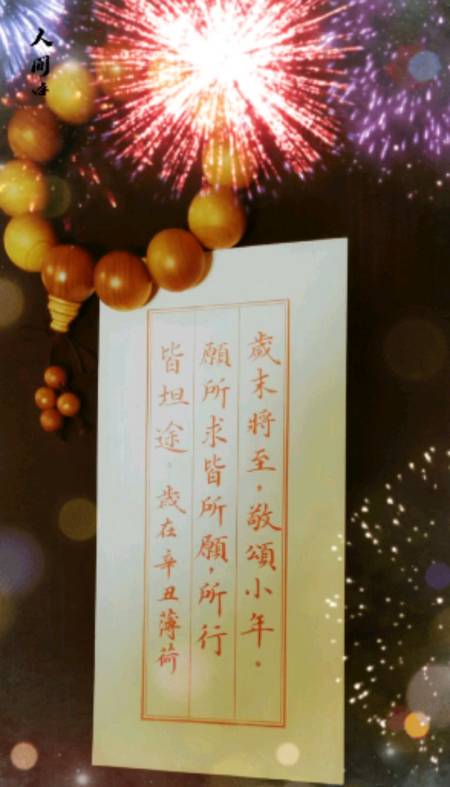 歲末將至，敬頌小年。
願所求皆所願，所行
皆坦途。歲在辛丑薄荷